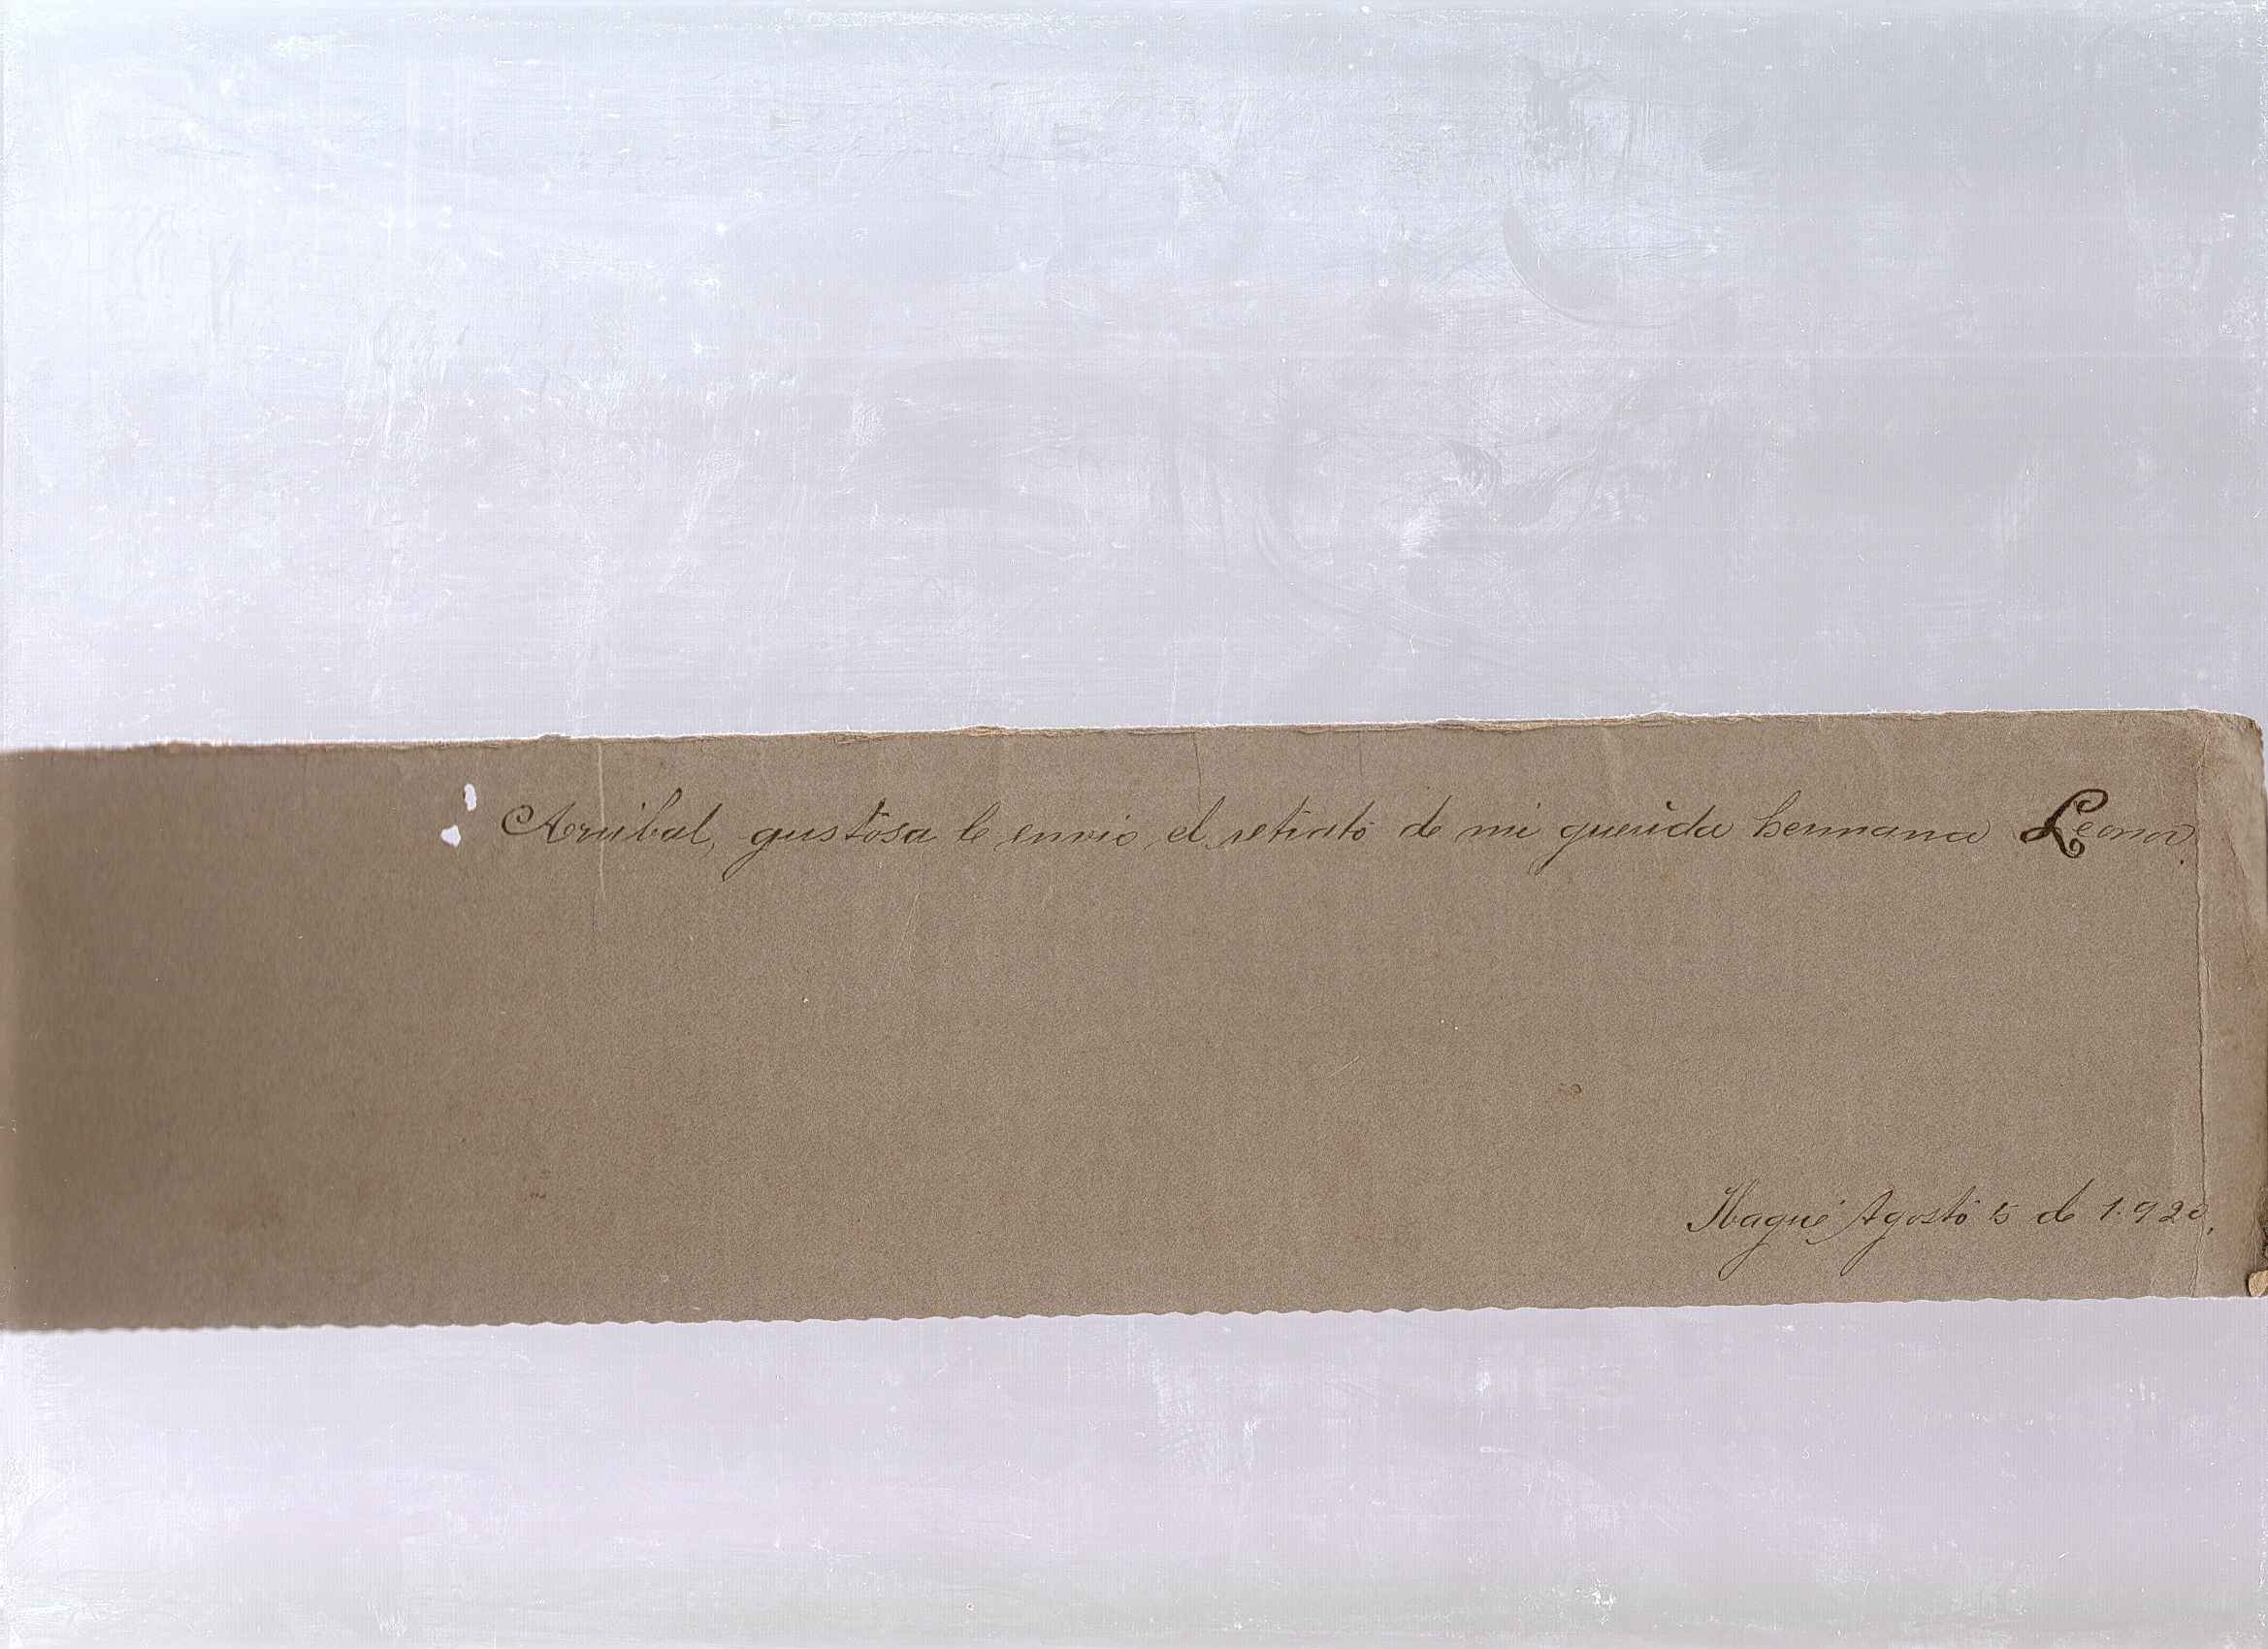 Annibal, gustosa le envio el retrato de mi querida hermana Leonor.
Ibagué Agosto 5 de 1.920.